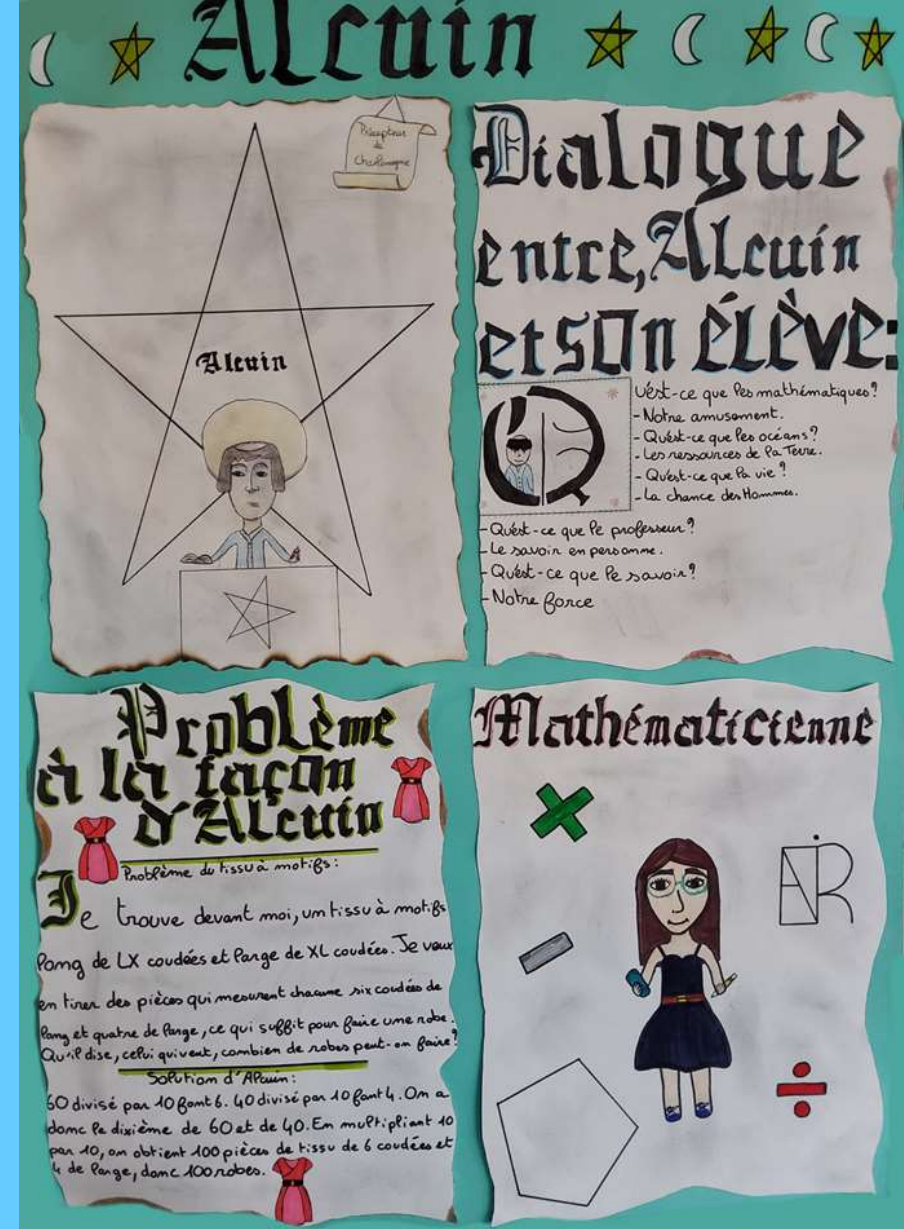 Alcuin
Précepteur
de
Charlemagne
Alcuin
Dialogue
entre, Alcuin
et son élève:
Qu'est-ce que les mathématiques?
- Notre amusement.
- Qu'est-ce que les océans?
- Les ressources de la Terre.
- Qu'est-ce que la vie?
- La chance des Hommes.
- Qu'est-ce que le professeur?
- Le savoir en personne.
- Qu'est-ce que le savoir?
- Notre force
Problème
à la façon
d'Alcuin
Problème du tissu à motifs:
Je trouve devant moi, un tissu à motifs
long de LX coudées et large de XL coudées. Je veux
en tirer des pièces qui mesurent chacune six coudées de
long et quatre de large, ce qui suffit pour faire une robe.
Qu'il dise, celui qui veut, combien de robes peut-on faire?
Solution d'Alcuin:
60 divisé par 10 font 6. 40 divisé par 10 font 4. On a
donc le dixième de 60 et de 40. En multipliant 10
par 10, on obtient 100 pièces de tissu de 6 coudées et
4 de large, donc 100 robes.
Mathématicienne